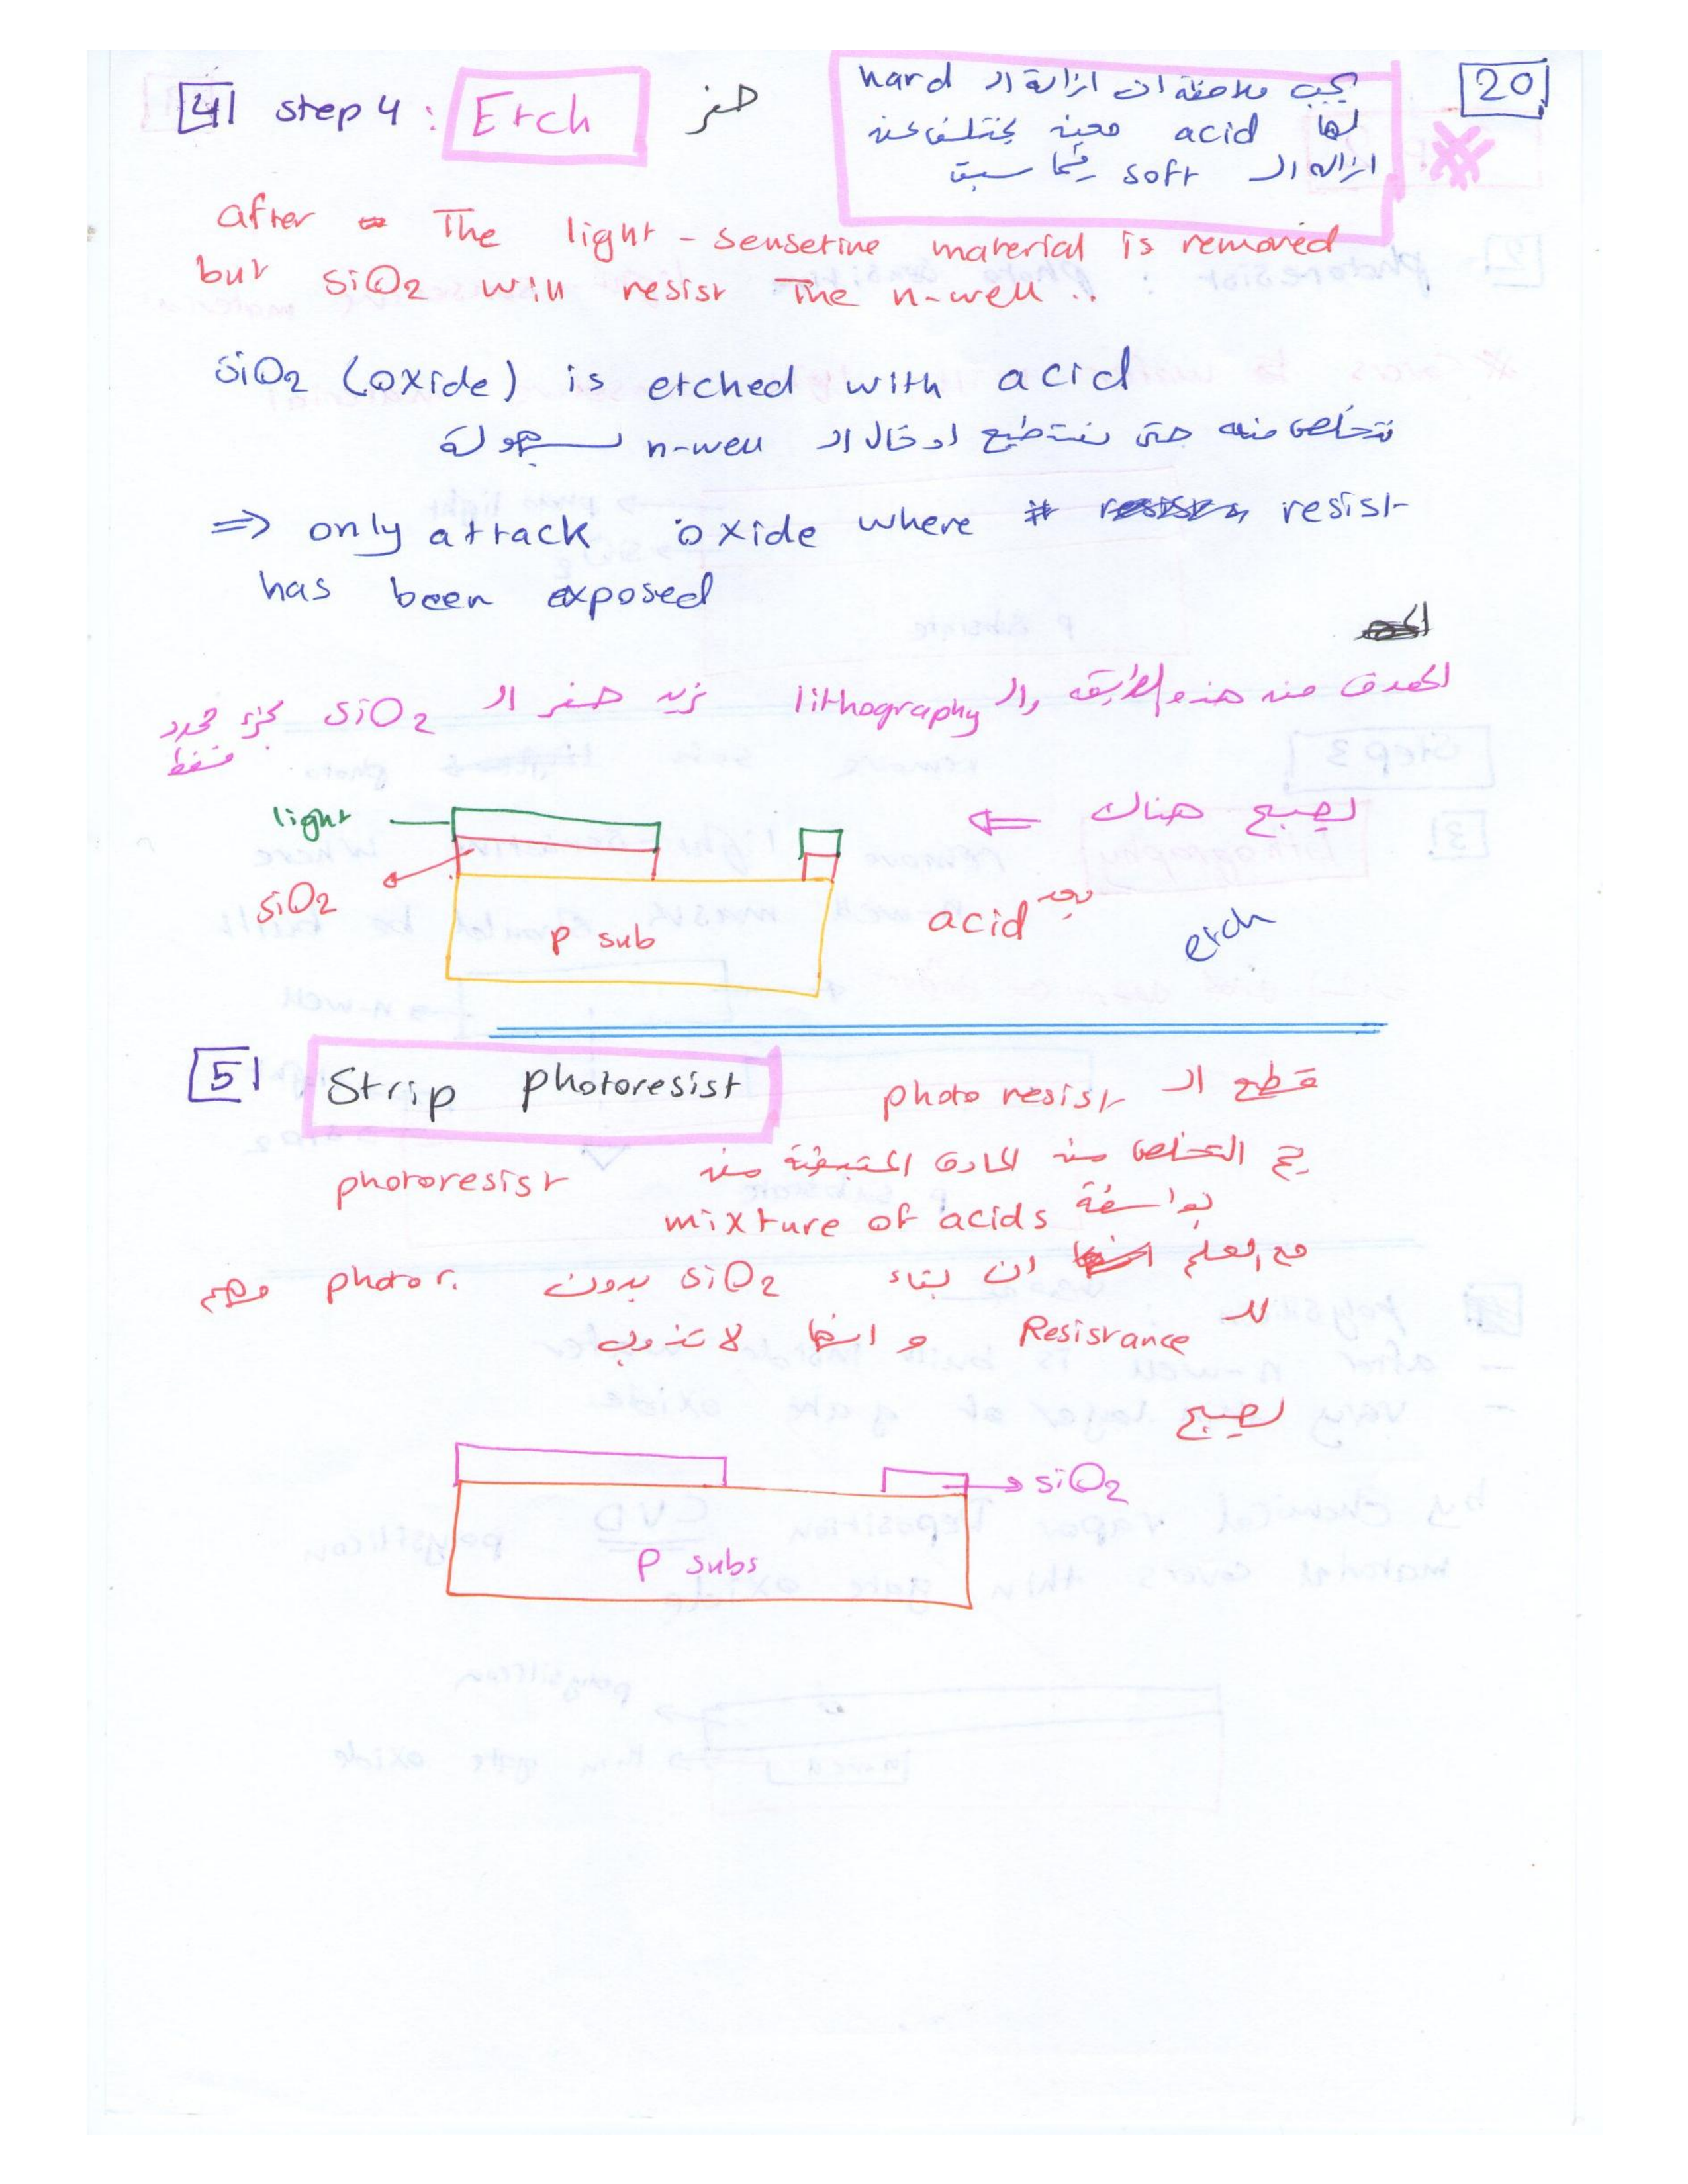 20
4 step 4 : Etch حفر
يجب ملاحظة ان ازالة الـ hard
لها acid معينه يختلف عن
ازاله الـ soft فيما سبق
after The light - sensetine material is removed
but SiO2 will resist The n-well ..
SiO2 (oxide) is etched with acid
نتخلص منه حتى نستطيع ادخال الـ n-well بسهولة
=> only attack oxide where resist
has been exposed
الهدف من هذه الطريقه والـ lithography نريد حفر الـ SiO2 لجزء محدد
فقط
ليصبح هناك <=
light
SiO2
P sub
acid بعد
etch
5 Strip photoresist قطع الـ photo resist
يتم التخلص من المادة المتبقية من photoresist
بواسطة mixture of acids
مع العلم ان بقاء SiO2 بدون photor. مهم
للـ Resistance و انها لا تذوب
ليصبح
SiO2
P subs